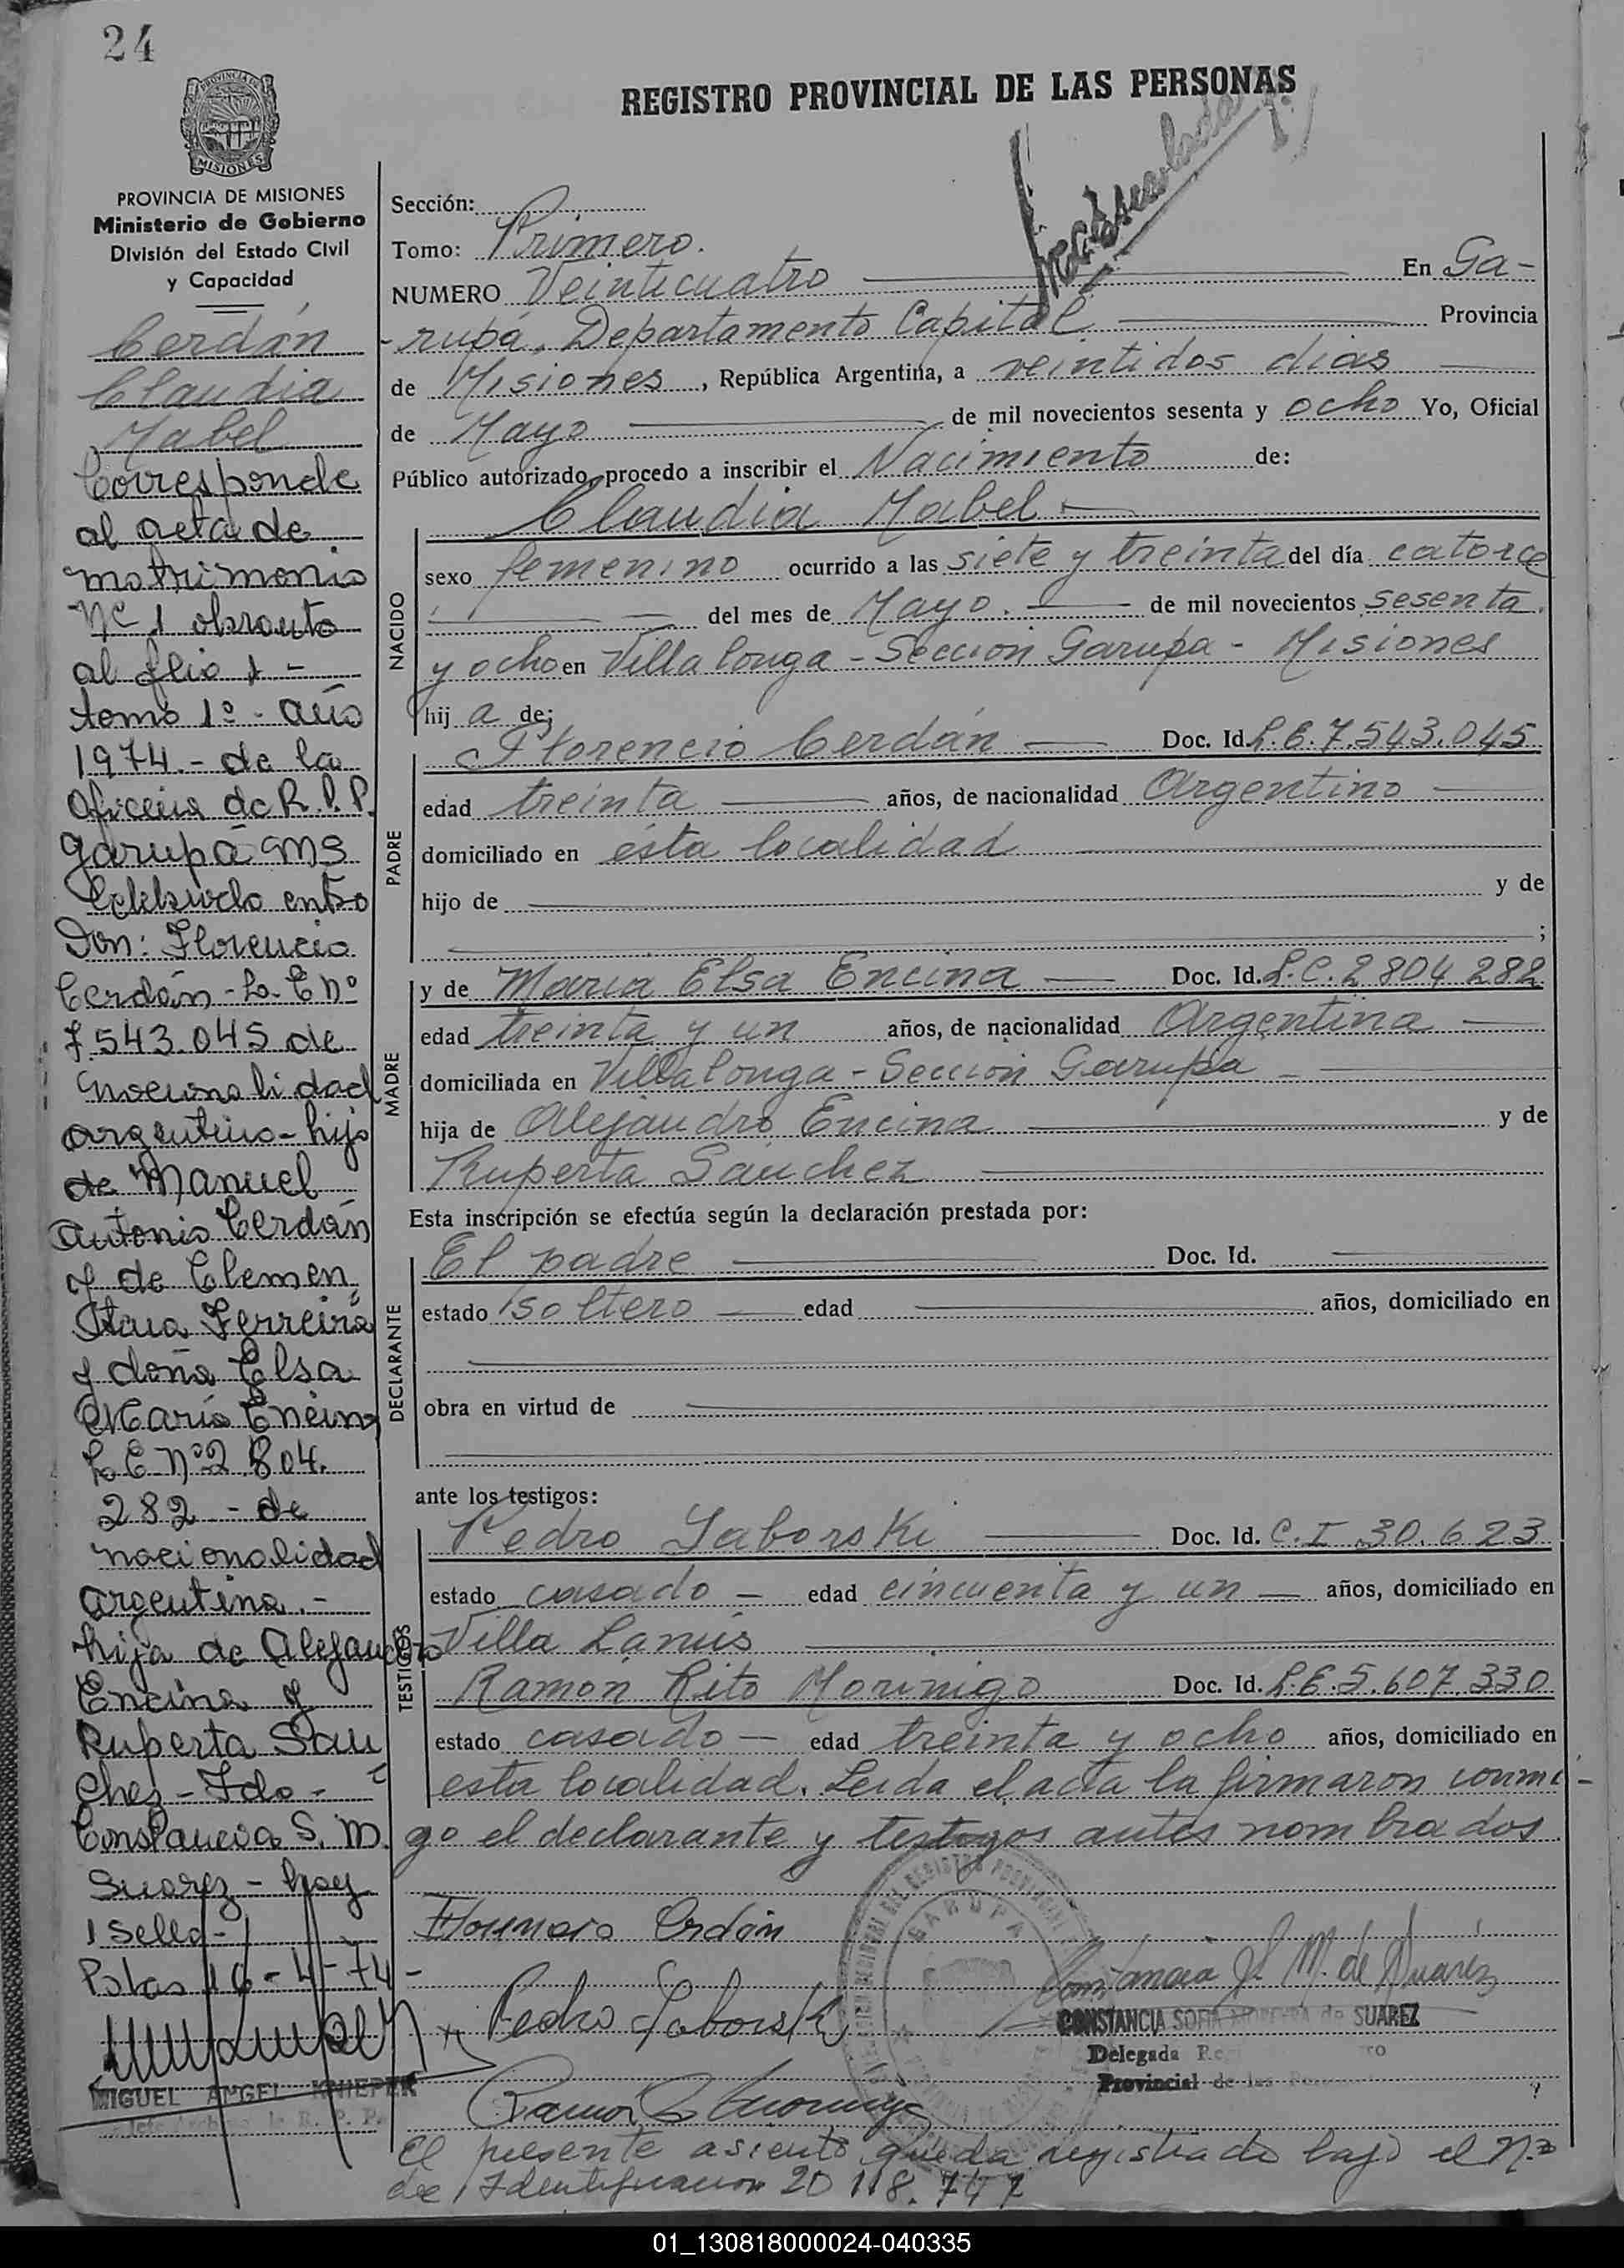 24
PROVINCIA DE
MISIONES
PROVINCIA DE MISIONES
Ministerio de Gobierno
División del Estado Civil
y Capacidad
Cerdán
Claudia
Mabel
Corresponde
al acta de
matrimonio
Nº 1 obrante
al flio 1 -
tomo 1º - año
1974.- de la
Oficina de R.P.P.
Garupá MS
Celebrado entre
Don: Florencio
Cerdán - L.E Nº
7.543.045 de
nacionalidad
argentino - hijo
de Manuel
Antonio Cerdán
y de Clemen
tina Ferreira
y doña Elsa
María Encina
L C Nº 2.804.
282 - de
nacionalidad
argentina.-
hija de Alejandro
Encina y
Ruperta Sán
chez - Fdo -
Constancia S. M.
Suarez - hay
1 sello -
Pdas 16-4-74-
MIGUEL ANGEL KNIEPER
REGISTRO PROVINCIAL DE LAS PERSONAS
Sección:
Tomo: Primero.
NUMERO Veinticuatro En Ga-
-rupá, Departamento Capital Provincia
de Misiones, República Argentina, a veintidos dias
de Mayo de mil novecientos sesenta y ocho Yo, Oficial
Público autorizado, procedo a inscribir el Nacimiento de:
Claudia Mabel
NACIDO
sexo femenino ocurrido a las siete y treinta del día catorce
del mes de Mayo. de mil novecientos sesenta
y ocho en Villa Longa - Sección Garupa - Misiones
hij a de:
PADRE
Florencio Cerdán Doc. Id. L.E. 7.543.045
edad treinta años, de nacionalidad Argentino
domiciliado en ésta localidad
hijo de y de
;
MADRE
y de María Elsa Encina Doc. Id. L.C. 2804 282
edad treinta y un años, de nacionalidad Argentina
domiciliada en Villa Longa - Sección Garupa
hija de Alejandro Encina y de
Ruperta Sánchez
Esta inscripción se efectúa según la declaración prestada por:
DECLARANTE
El padre Doc. Id.
estado soltero edad años, domiciliado en
obra en virtud de
ante los testigos:
TESTIGOS
Pedro Laborski Doc. Id. C.I 30.623
estado casado - edad cincuenta y un años, domiciliado en
Villa Lanús
Ramón Rito Morinigo Doc. Id. L.E. 5.607.330
estado casado - edad treinta y ocho años, domiciliado en
esta localidad. Leida el acta la firmaron conmi-
go el declarante y testigos antes nombrados.
GARUPA
Pedro Laborski
Constancia S. M. de Suárez
CONSTANCIA SOFIA MOREYRA de SUAREZ
Delegada
Provincial de las
El presente asiento queda registrado bajo el Nº
de Identificacion 20 118.747
01_130818000024-040335